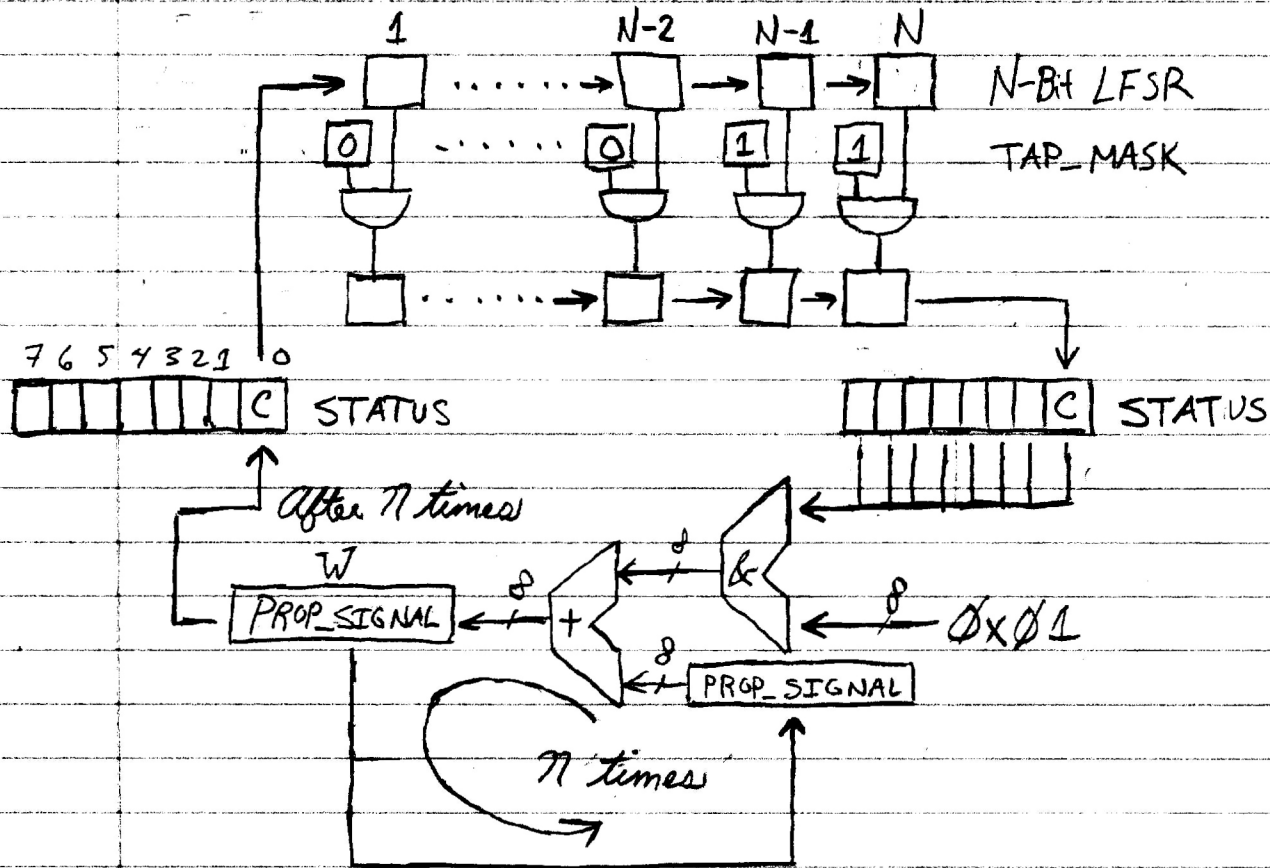 1 N-2 N-1 N
N-Bit LFSR
0 0 1 1 TAP_MASK
7 6 5 4 3 2 1 0
C STATUS C STATUS
After n times
W 8 8 &
PROP_SIGNAL + 8 0x01
8 PROP_SIGNAL
n times